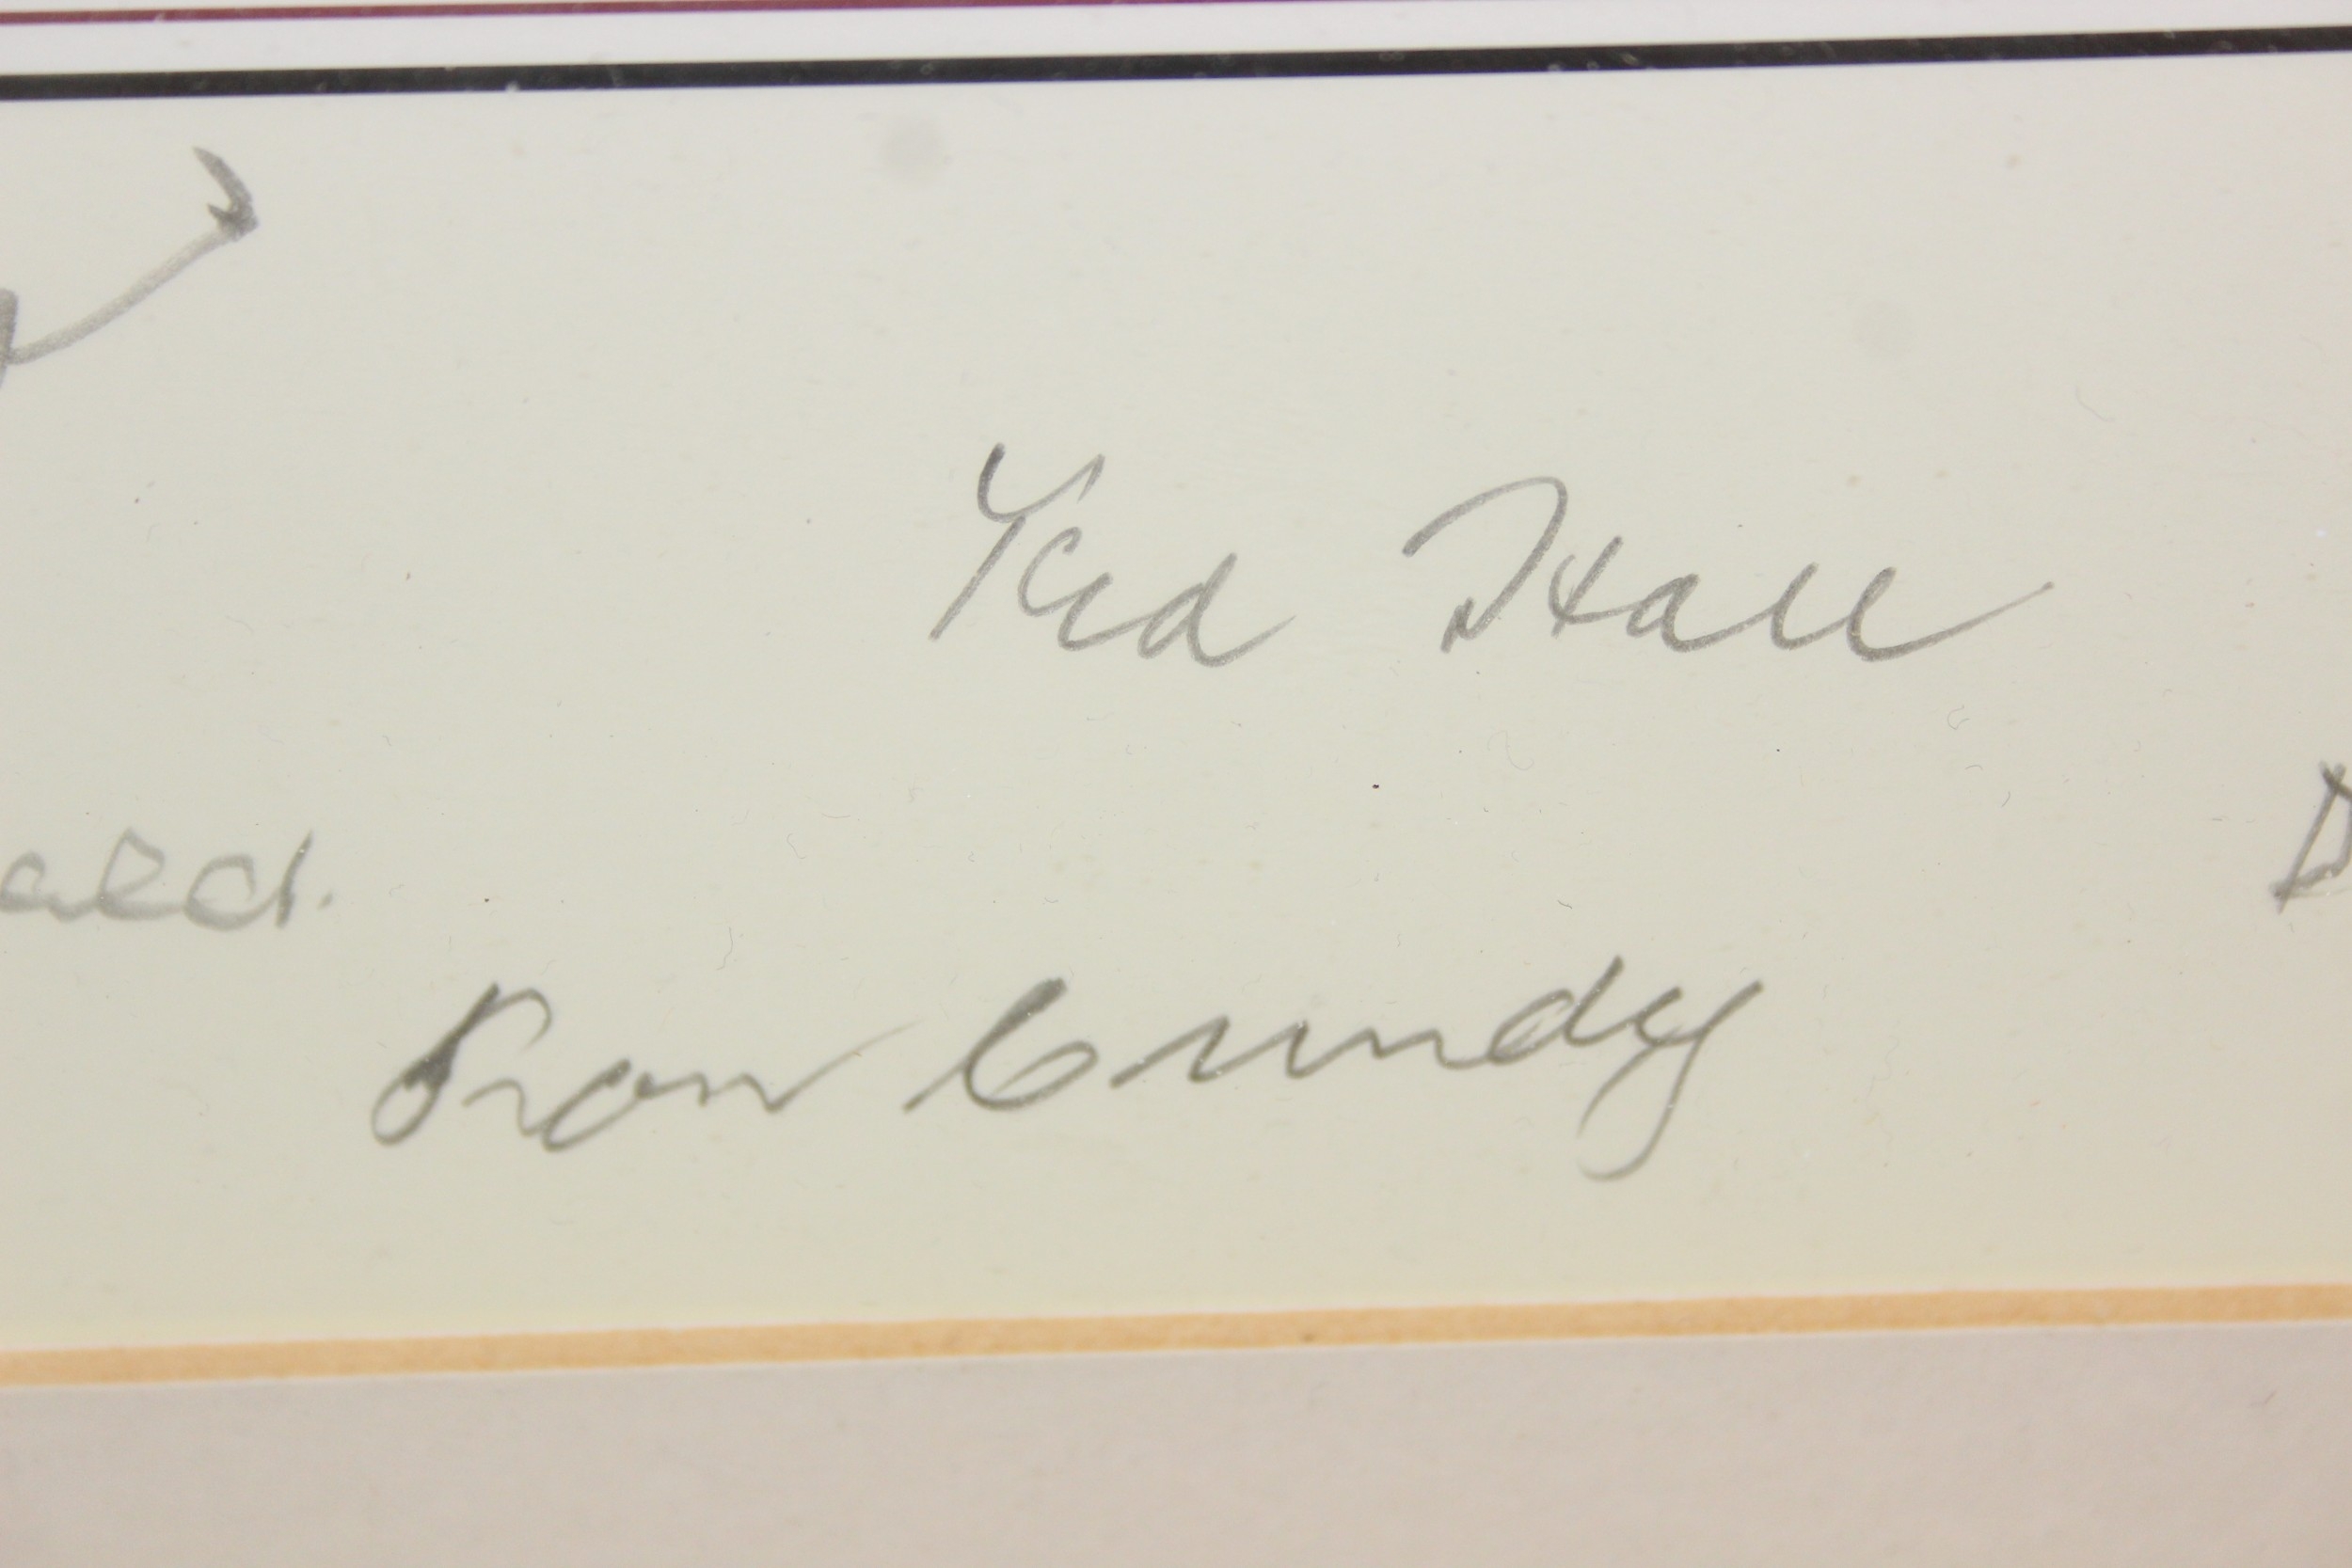 Ted Hall
ald.
D
Ron Cundy